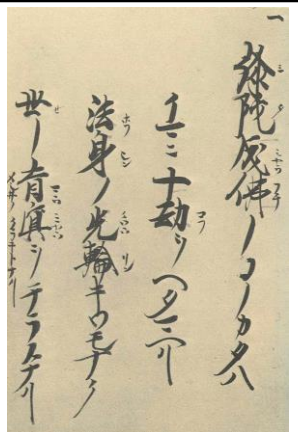 一
彌陀成佛ノコノカタハ
イマニ十劫ヲヘタマヘリ
法身ノ光輪キワモナク
世ノ盲冥ヲテラスナリ